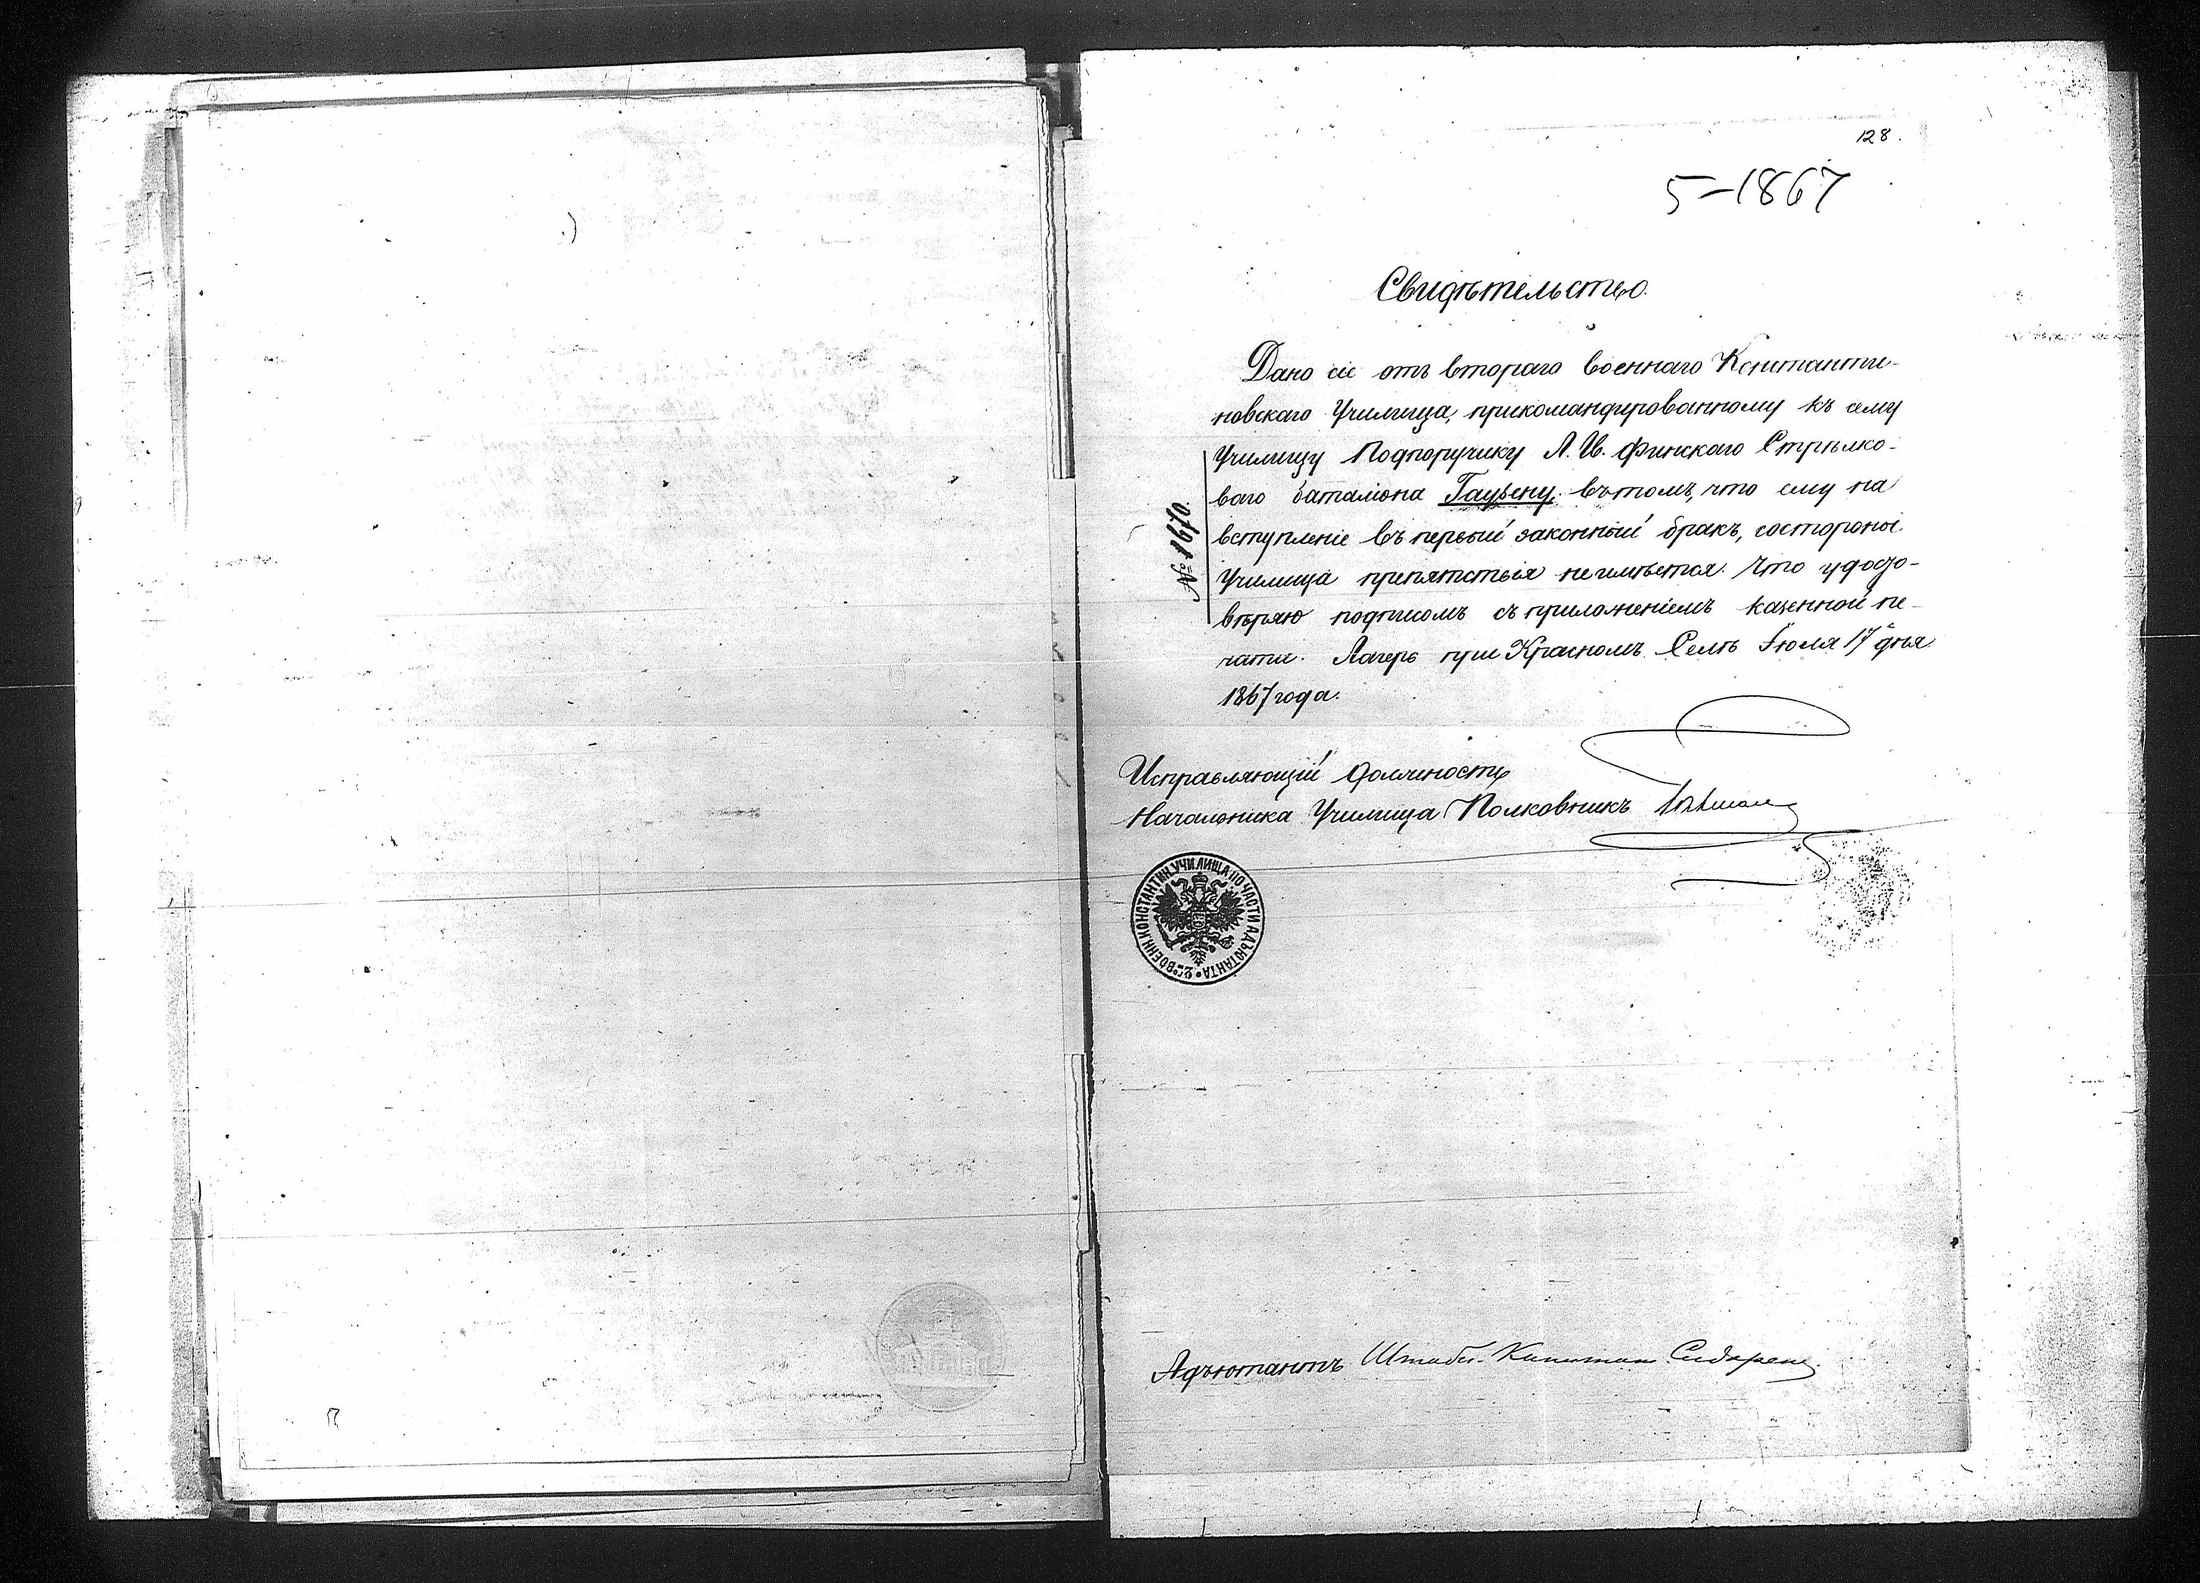 128.
5–1867
Свидѣтельство.
Дано сіе отъ втораго военнаго Константи-
новскаго Училища, прикомандированному къ сему
Училищу Подпоручику Л. Гв. Финскаго Стрѣлко-
ваго баталіона Гаузену, въ томъ, что ему на
вступленіе въ первый законный бракъ, со стороны
Училища препятствія не имѣется. Что удосто-
вѣряю подписомъ съ приложеніемъ казенной пе-
чати. Лагерь при Красномъ Селѣ Іюля 17 дня
1867 года.
№ 1670.
Исправляющій должность
Начальника Училища Полковникъ
2го ВОЕНН. КОНСТАНТИН. УЧИЛИЩА ПО ЧАСТИ АДЪЮТАНТА
Адъютантъ Штабсъ-Капитанъ